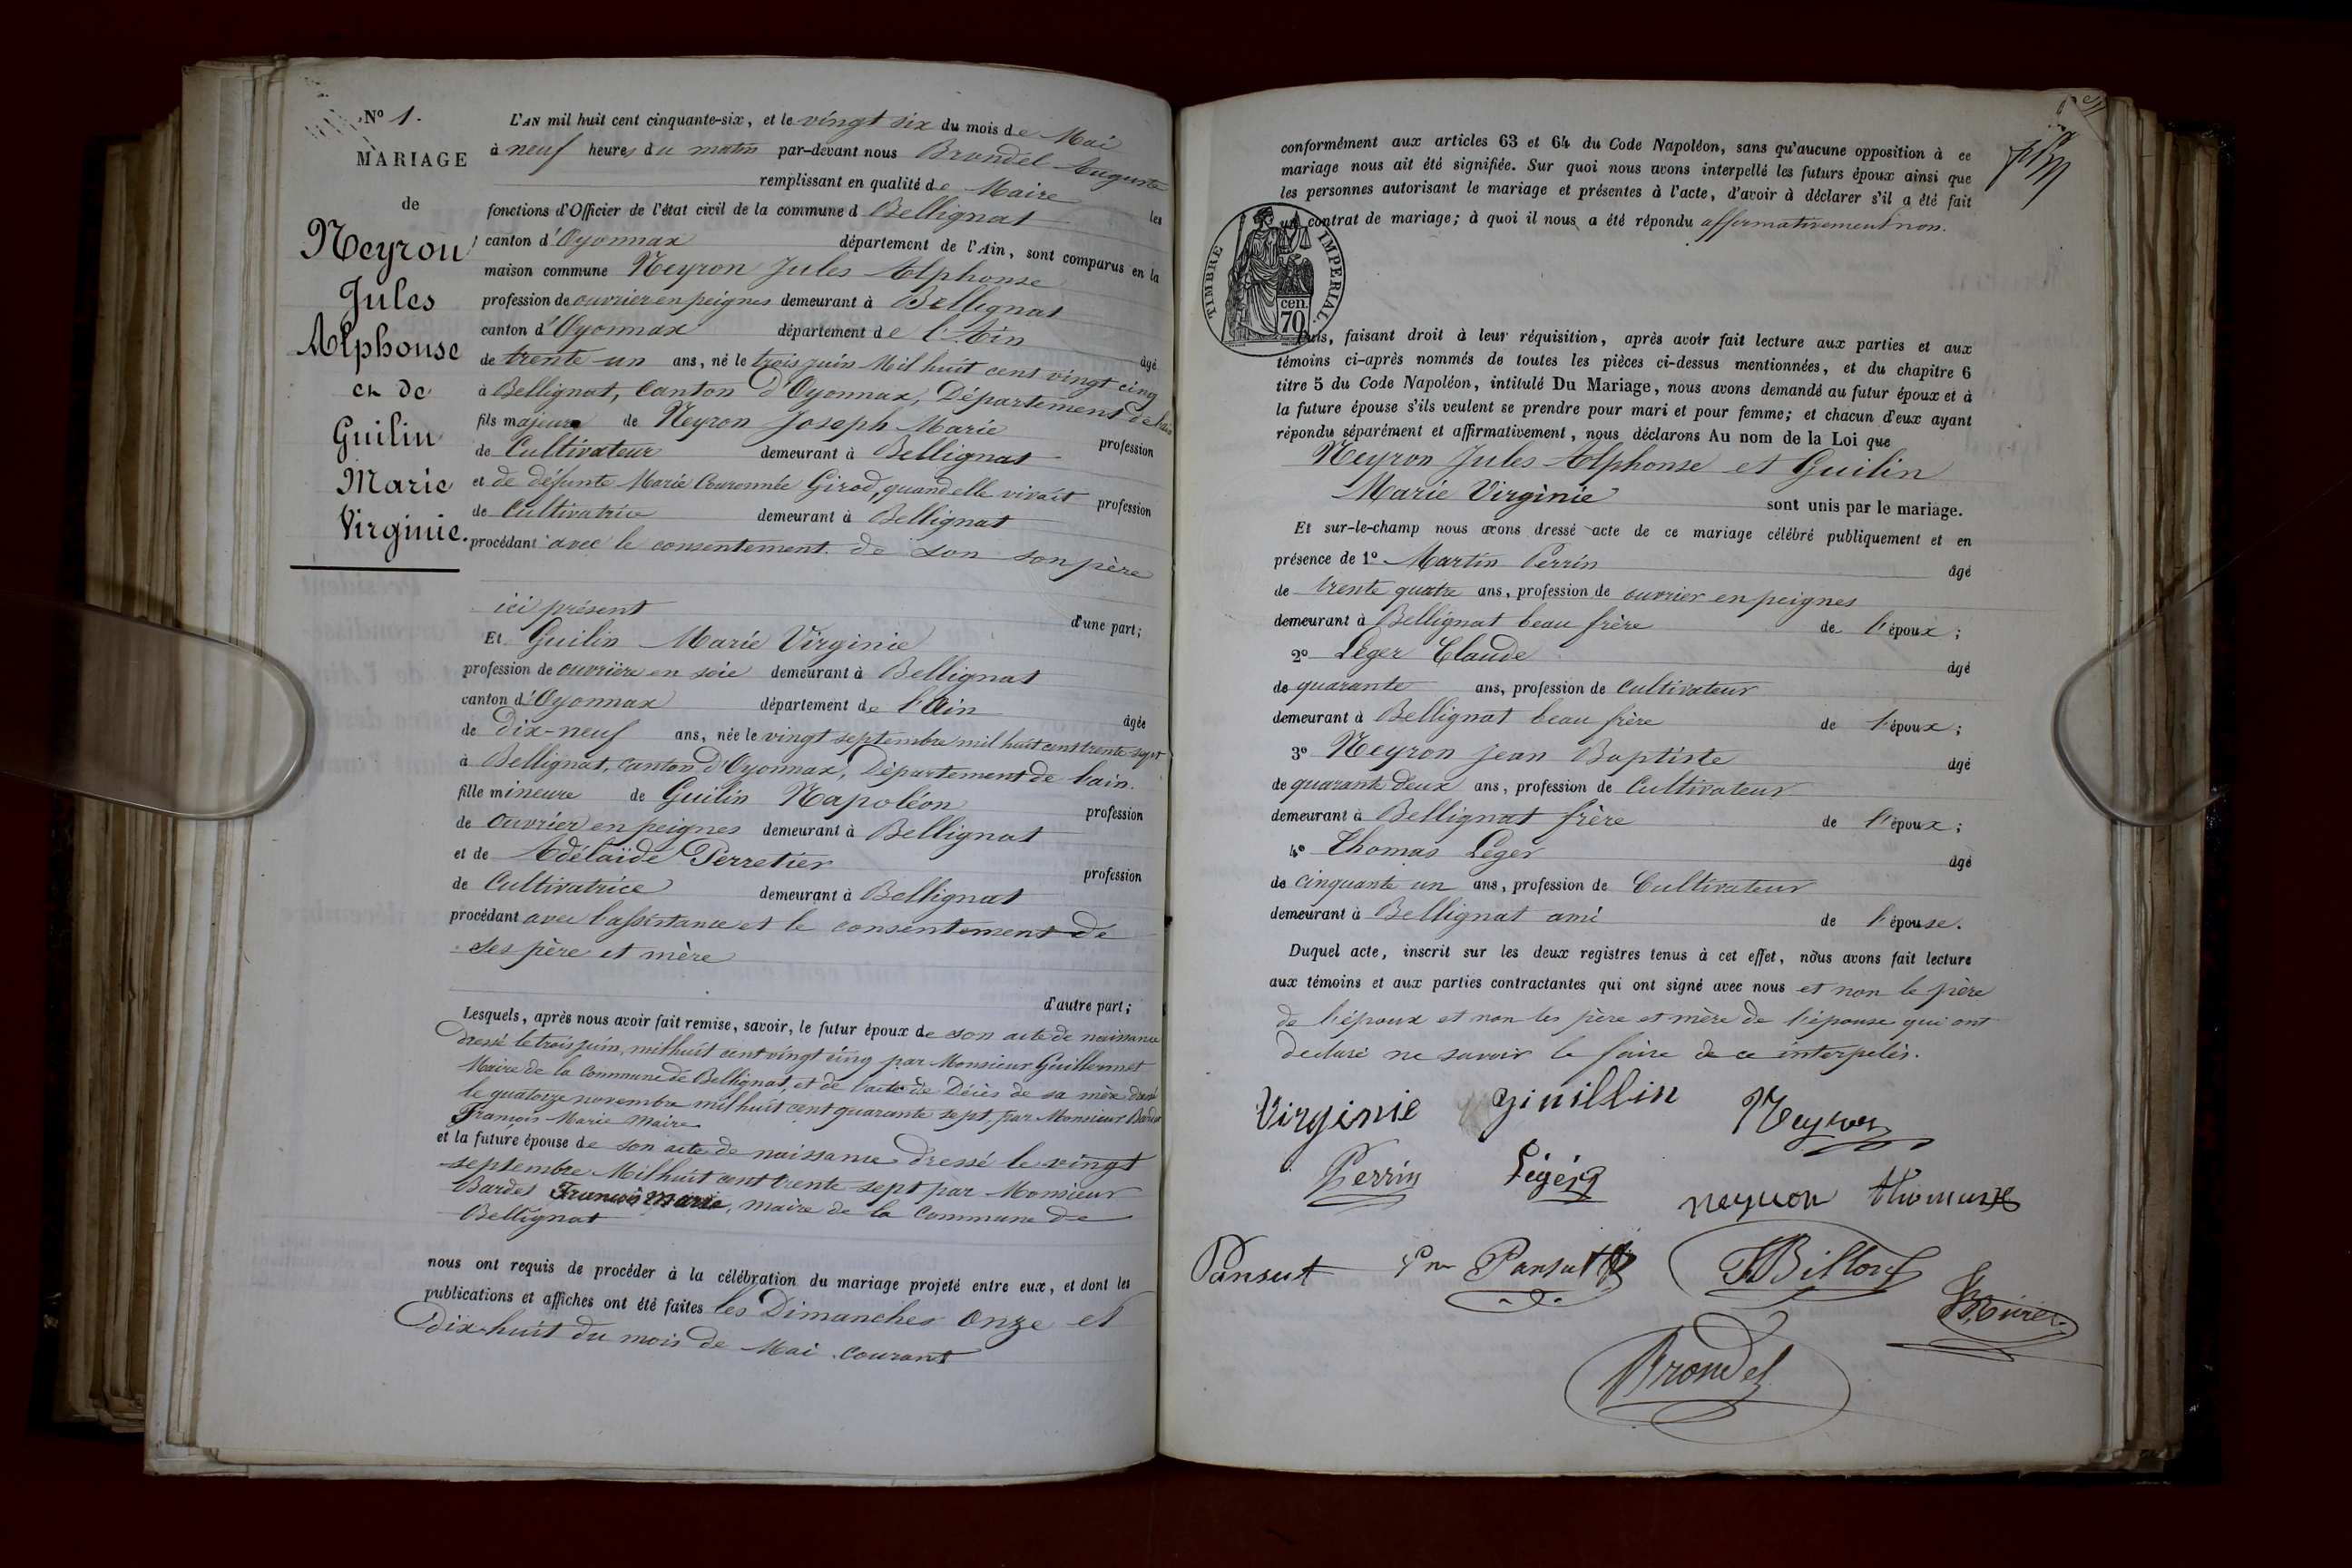 N° 1.
MARIAGE
de
Neyron
Jules
Alphonse
et de
Guilin
Marie
Virginie.
L'AN mil huit cent cinquante-six, et le vingt six du mois de Mai
à neuf heures du matin par-devant nous Brondel Auguste
remplissant en qualité de Maire les
fonctions d'Officier de l'état civil de la commune d Bellignat
canton d'Oyonnax département de l'Ain, sont comparus en la
maison commune Neyron Jules Alphonse
profession de ouvrier en peignes demeurant à Bellignat
canton d'Oyonnax département de l'Ain âgé
de trente un ans, né le trois juin Mil huit cent vingt cinq
à Bellignat, Canton d'Oyonnax, Département de l'ain
fils majeur de Neyron Joseph Marie profession
de Cultivateur demeurant à Bellignat
et de défunte Marie Couronnée Girod, quand elle vivait profession
de Cultivatrice demeurant à Bellignat
procédant avec le consentement de son son père
ici présent d'une part;
Et Guilin Marie Virginie
profession de ouvrière en soie demeurant à Bellignat
canton d'Oyonnax département de l'Ain âgée
de Dix-neuf ans, née le vingt septembre mil huit cent trente sept
à Bellignat, canton d'Oyonnax, Département de l'ain.
fille mineure de Guilin Napoléon profession
de ouvrier en peignes demeurant à Bellignat
et de Adélaïde Perretier profession
de Cultivatrice demeurant à Bellignat
procédant avec l'assistance et le consentement de
ses père et mère
d'autre part;
Lesquels, après nous avoir fait remise, savoir, le futur époux de son acte de naissance
dressé le trois juin, mil huit cent vingt cinq par Monsieur Guillermet
Maire de la Commune de Bellignat, et de l'acte de Décès de sa mère dressé
le quatorze novembre mil huit cent quarante sept, par Monsieur Bardet
François Marie Maire
et la future épouse de son acte de naissance dressé le vingt
septembre Mil huit cent trente sept par Monsieur
Bardet François Marie, maire de la Commune de
Bellignat
nous ont requis de procéder à la célébration du mariage projeté entre eux, et dont les
publications et affiches ont été faites les Dimanches Onze et
dix-huit du mois de Mai courant
conformément aux articles 63 et 64 du Code Napoléon, sans qu'aucune opposition à ce
mariage nous ait été signifiée. Sur quoi nous avons interpellé les futurs époux ainsi que
les personnes autorisant le mariage et présentes à l'acte, d'avoir à déclarer s'il a été fait
un contrat de mariage; à quoi il nous a été répondu affirmativement non.
TIMBRE IMPERIAL.
cen.
70
Puis, faisant droit à leur réquisition, après avoir fait lecture aux parties et aux
témoins ci-après nommés de toutes les pièces ci-dessus mentionnées, et du chapitre 6
titre 5 du Code Napoléon, intitulé Du Mariage, nous avons demandé au futur époux et à
la future épouse s'ils veulent se prendre pour mari et pour femme; et chacun d'eux ayant
répondu séparément et affirmativement, nous déclarons Au nom de la Loi que
Neyron Jules Alphonse et Guilin
Marie Virginie sont unis par le mariage.
Et sur-le-champ nous avons dressé acte de ce mariage célébré publiquement et en
présence de 1° Martin Perrin âgé
de trente quatre ans, profession de ouvrier en peignes
demeurant à Bellignat beau frère de l'époux;
2° Léger Claude âgé
de quarante ans, profession de cultivateur
demeurant à Bellignat beau frère de l'époux;
3° Neyron Jean Baptiste âgé
de quarante Deux ans, profession de Cultivateur
demeurant à Bellignat frère de l'époux;
4° Thomas Léger âgé
de cinquante un ans, profession de Cultivateur
demeurant à Bellignat ami de l'épouse.
Duquel acte, inscrit sur les deux registres tenus à cet effet, nous avons fait lecture
aux témoins et aux parties contractantes qui ont signé avec nous et non le père
de l'époux et non les père et mère de l'épouse qui ont
déclaré ne savoir le faire de ce interpelés.
Virginie Guillin Neyron
Perrin Léger
neyron thomas
Pansut Pansut JBillon
Brondel